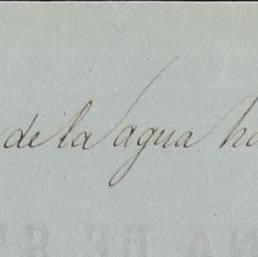 de la agua